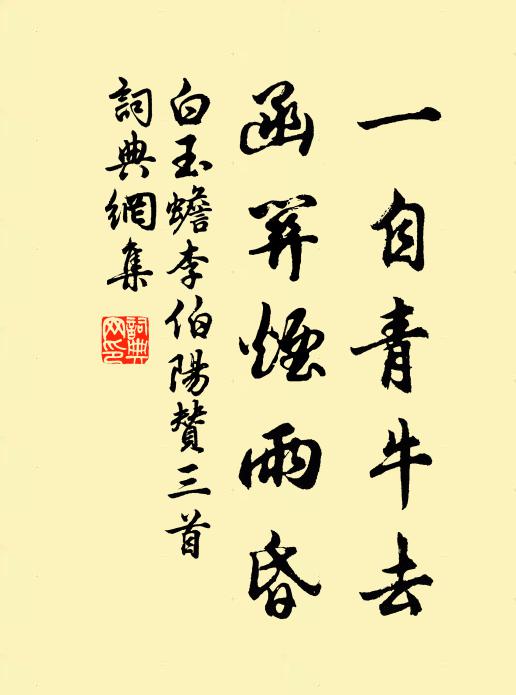 一自青牛去
函關煙雨昏
白玉蟾李伯陽贊三首
詞典網集
詞典
网印